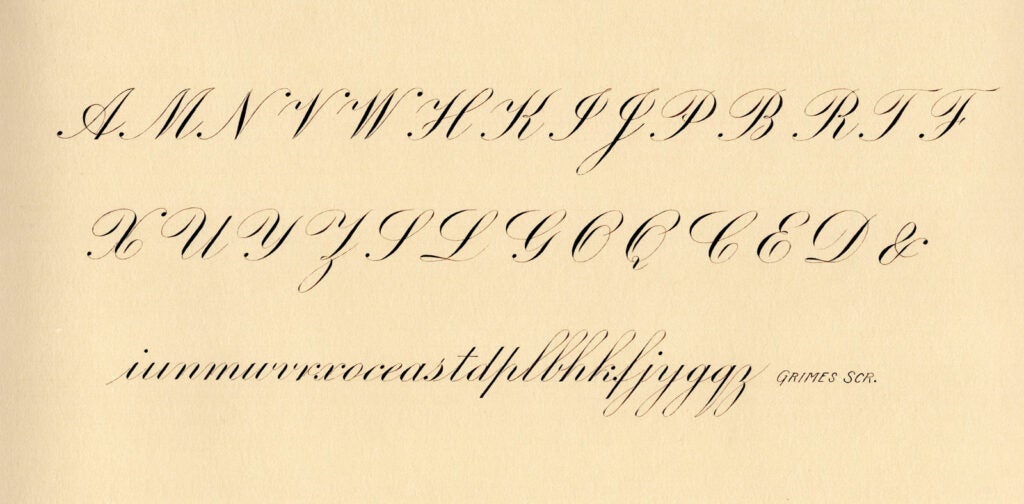 A M N V W H K I J P B R T F
X U Y Z S L G O Q C E D &
iunmwvrxoceastdplbhkfjygqz GRIMES SCR.